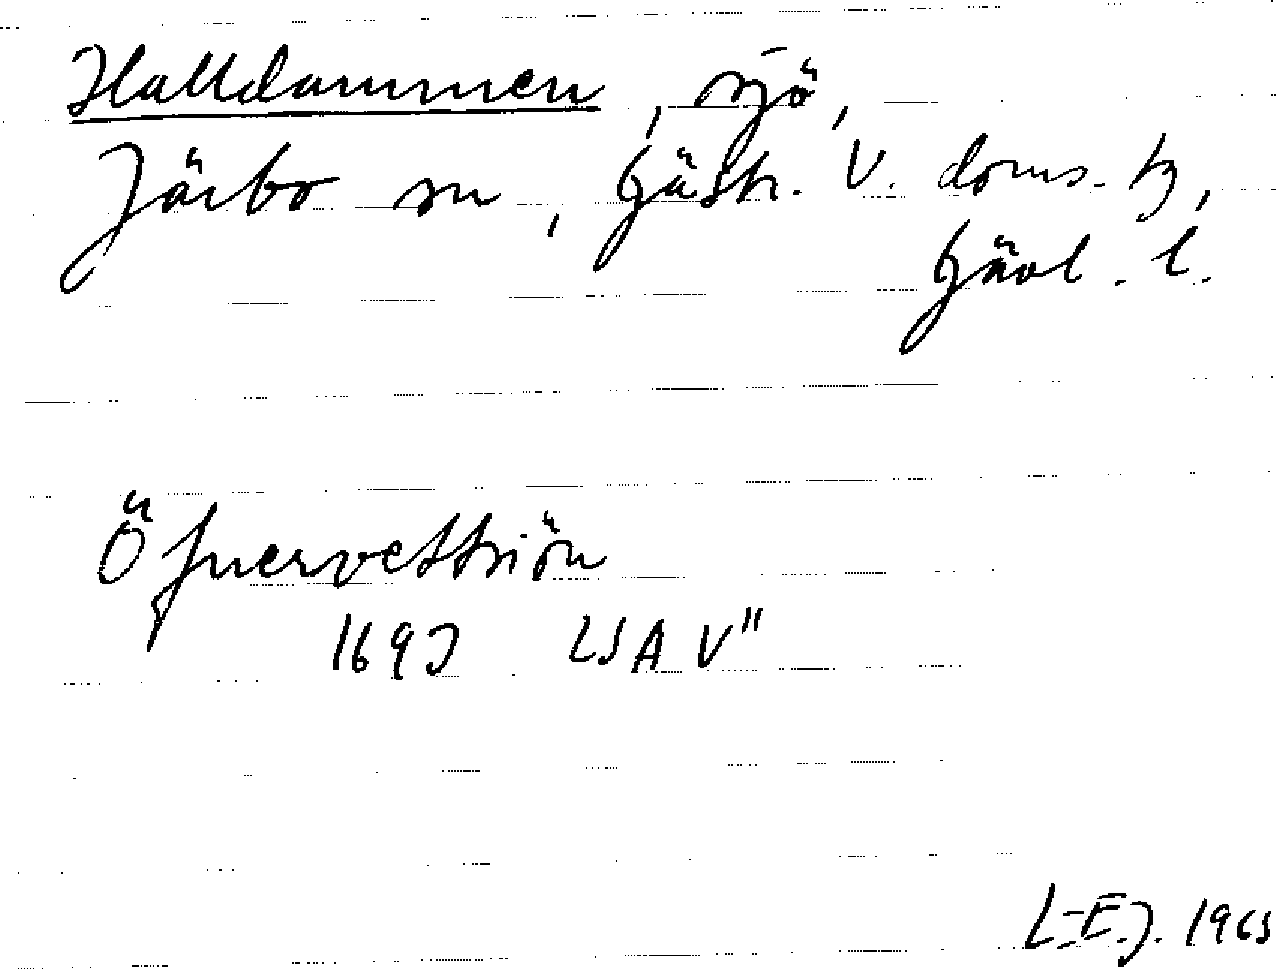 Halldammen, sjö,
Järbo sn, Gästr. V. doms. h,
Gävl. l.
Öfnervettsiön
1693 LSA V"
L-E.J. 1965